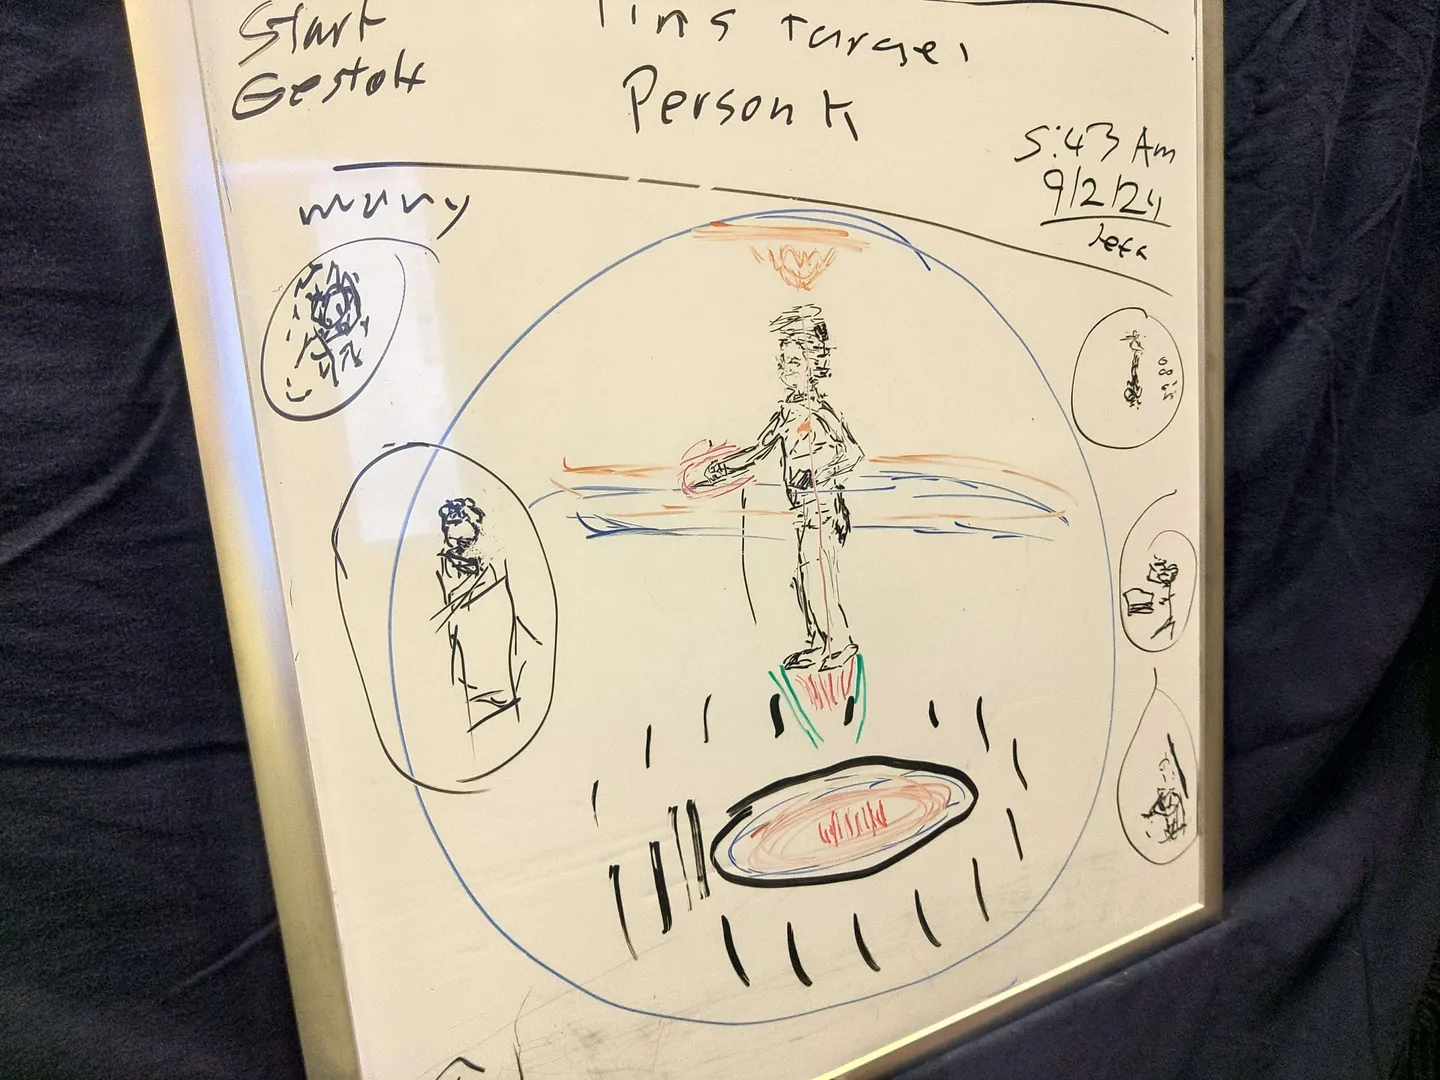 Start
Gestalt
Target
Person K
5:43 Am
9/2/24
Jeff
many